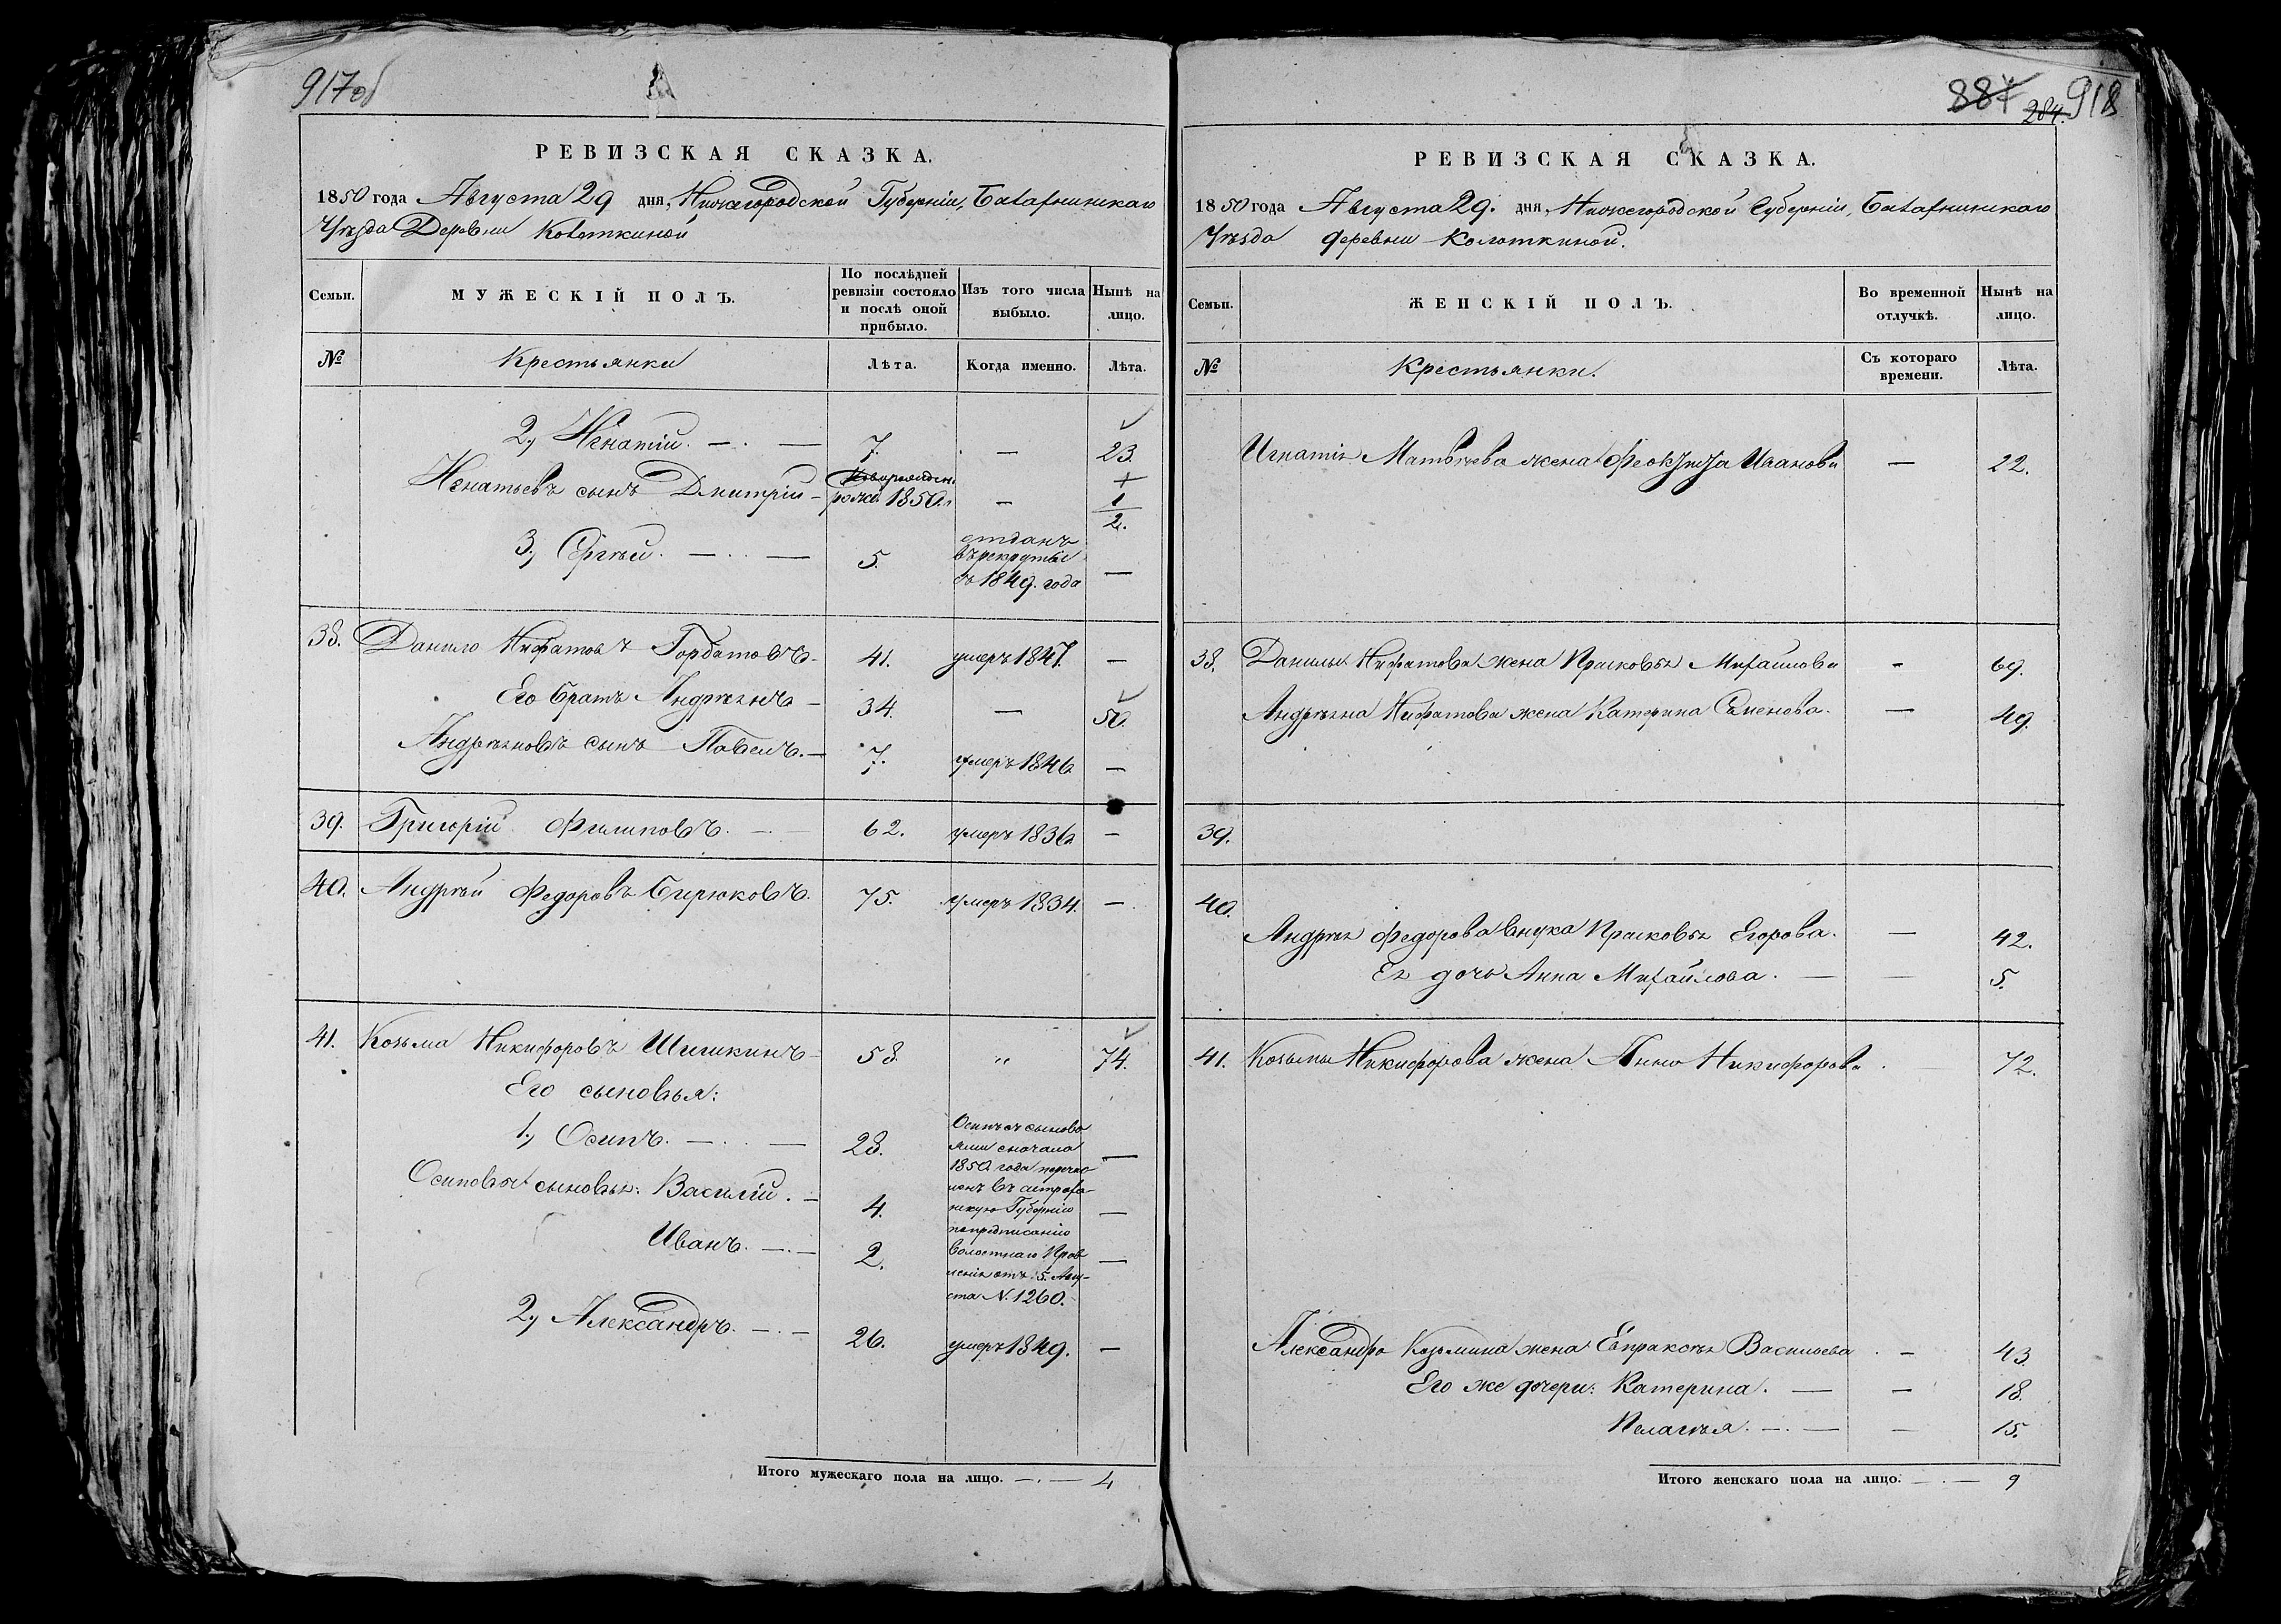 917об
РЕВИЗСКАЯ СКАЗКА.
1850 года Августа 29 дня, Нижегородской Губерніи, Балахнинскаго
Уѣзда Деревни Колоткиной
Семьи.
МУЖЕСКІЙ ПОЛЪ.
По послѣдней ревизіи состояло и послѣ оной прибыло.
Изъ того числа выбыло.
Нынѣ на лицо.
№ Крестьянки Лѣта. Когда именно. Лѣта.
2, Игнатій. — 7. — 23.
Игнатьевъ сынъ Дмитрій — рожд. 1850. — 1/2.
3, Сергѣй. — 5. отданъ
въ рекруты
въ 1849. года —
38. Данило Нифатовъ Горбатовъ. 41. умеръ 1847. —
Его братъ Андреянъ — 34. — 50.
Андреяновъ сынъ Павелъ. — 7. умеръ 1846 —
39. Григорій Филиповъ. — 62. умеръ 1836 —
40. Андрей Федоровъ Бирюковъ. 75. умеръ 1834. —
41. Козьма Никифоровъ Шишкинъ — 58 „ 74.
Его сыновья:
1, Осипъ. — 28. —
Осиповы сыновья: Василій. — 4. —
Иванъ. — 2. —
Осипъ съ сыновь
ями сначала
1850 года перечис
ленъ въ астраха-
нскую Губернію
попредписанію
Волостнаго Прав
ленія отъ 5. Авгу-
ста N. 1260.
2, Александръ. — 26. умеръ 1849. —
Итого мужескаго пола на лицо. — 4
887 284. 918
РЕВИЗСКАЯ СКАЗКА.
1850 года Августа 29. дня, Нижегородской Губерніи, Балахнинскаго
Уѣзда деревни Колоткиной.
Семьи.
ЖЕНСКІЙ ПОЛЪ.
Во временной отлучкѣ.
Нынѣ на лицо.
№ Крестьянки. Съ котораго времени. Лѣта.
Игнатія Матвѣева жена Иванова — 22.
38. Данилы Нифатова жена Прасковья Михайлова - 69.
Андреяна Нифатова жена Катерина Семенова. — 49.
39.
40.
Андрея Федорова внука Прасковья Егорова. — 42.
Ея дочь Анна Михайлова. — 5.
41. Козьмы Никифорова жена Анна Никифорова 72.
Александра Козьмина жена Евпраксья Васильева - 43.
Его же дочери: Катерина. — 18.
Пелагѣя. — 15.
Итого женскаго пола на лицо. — 9